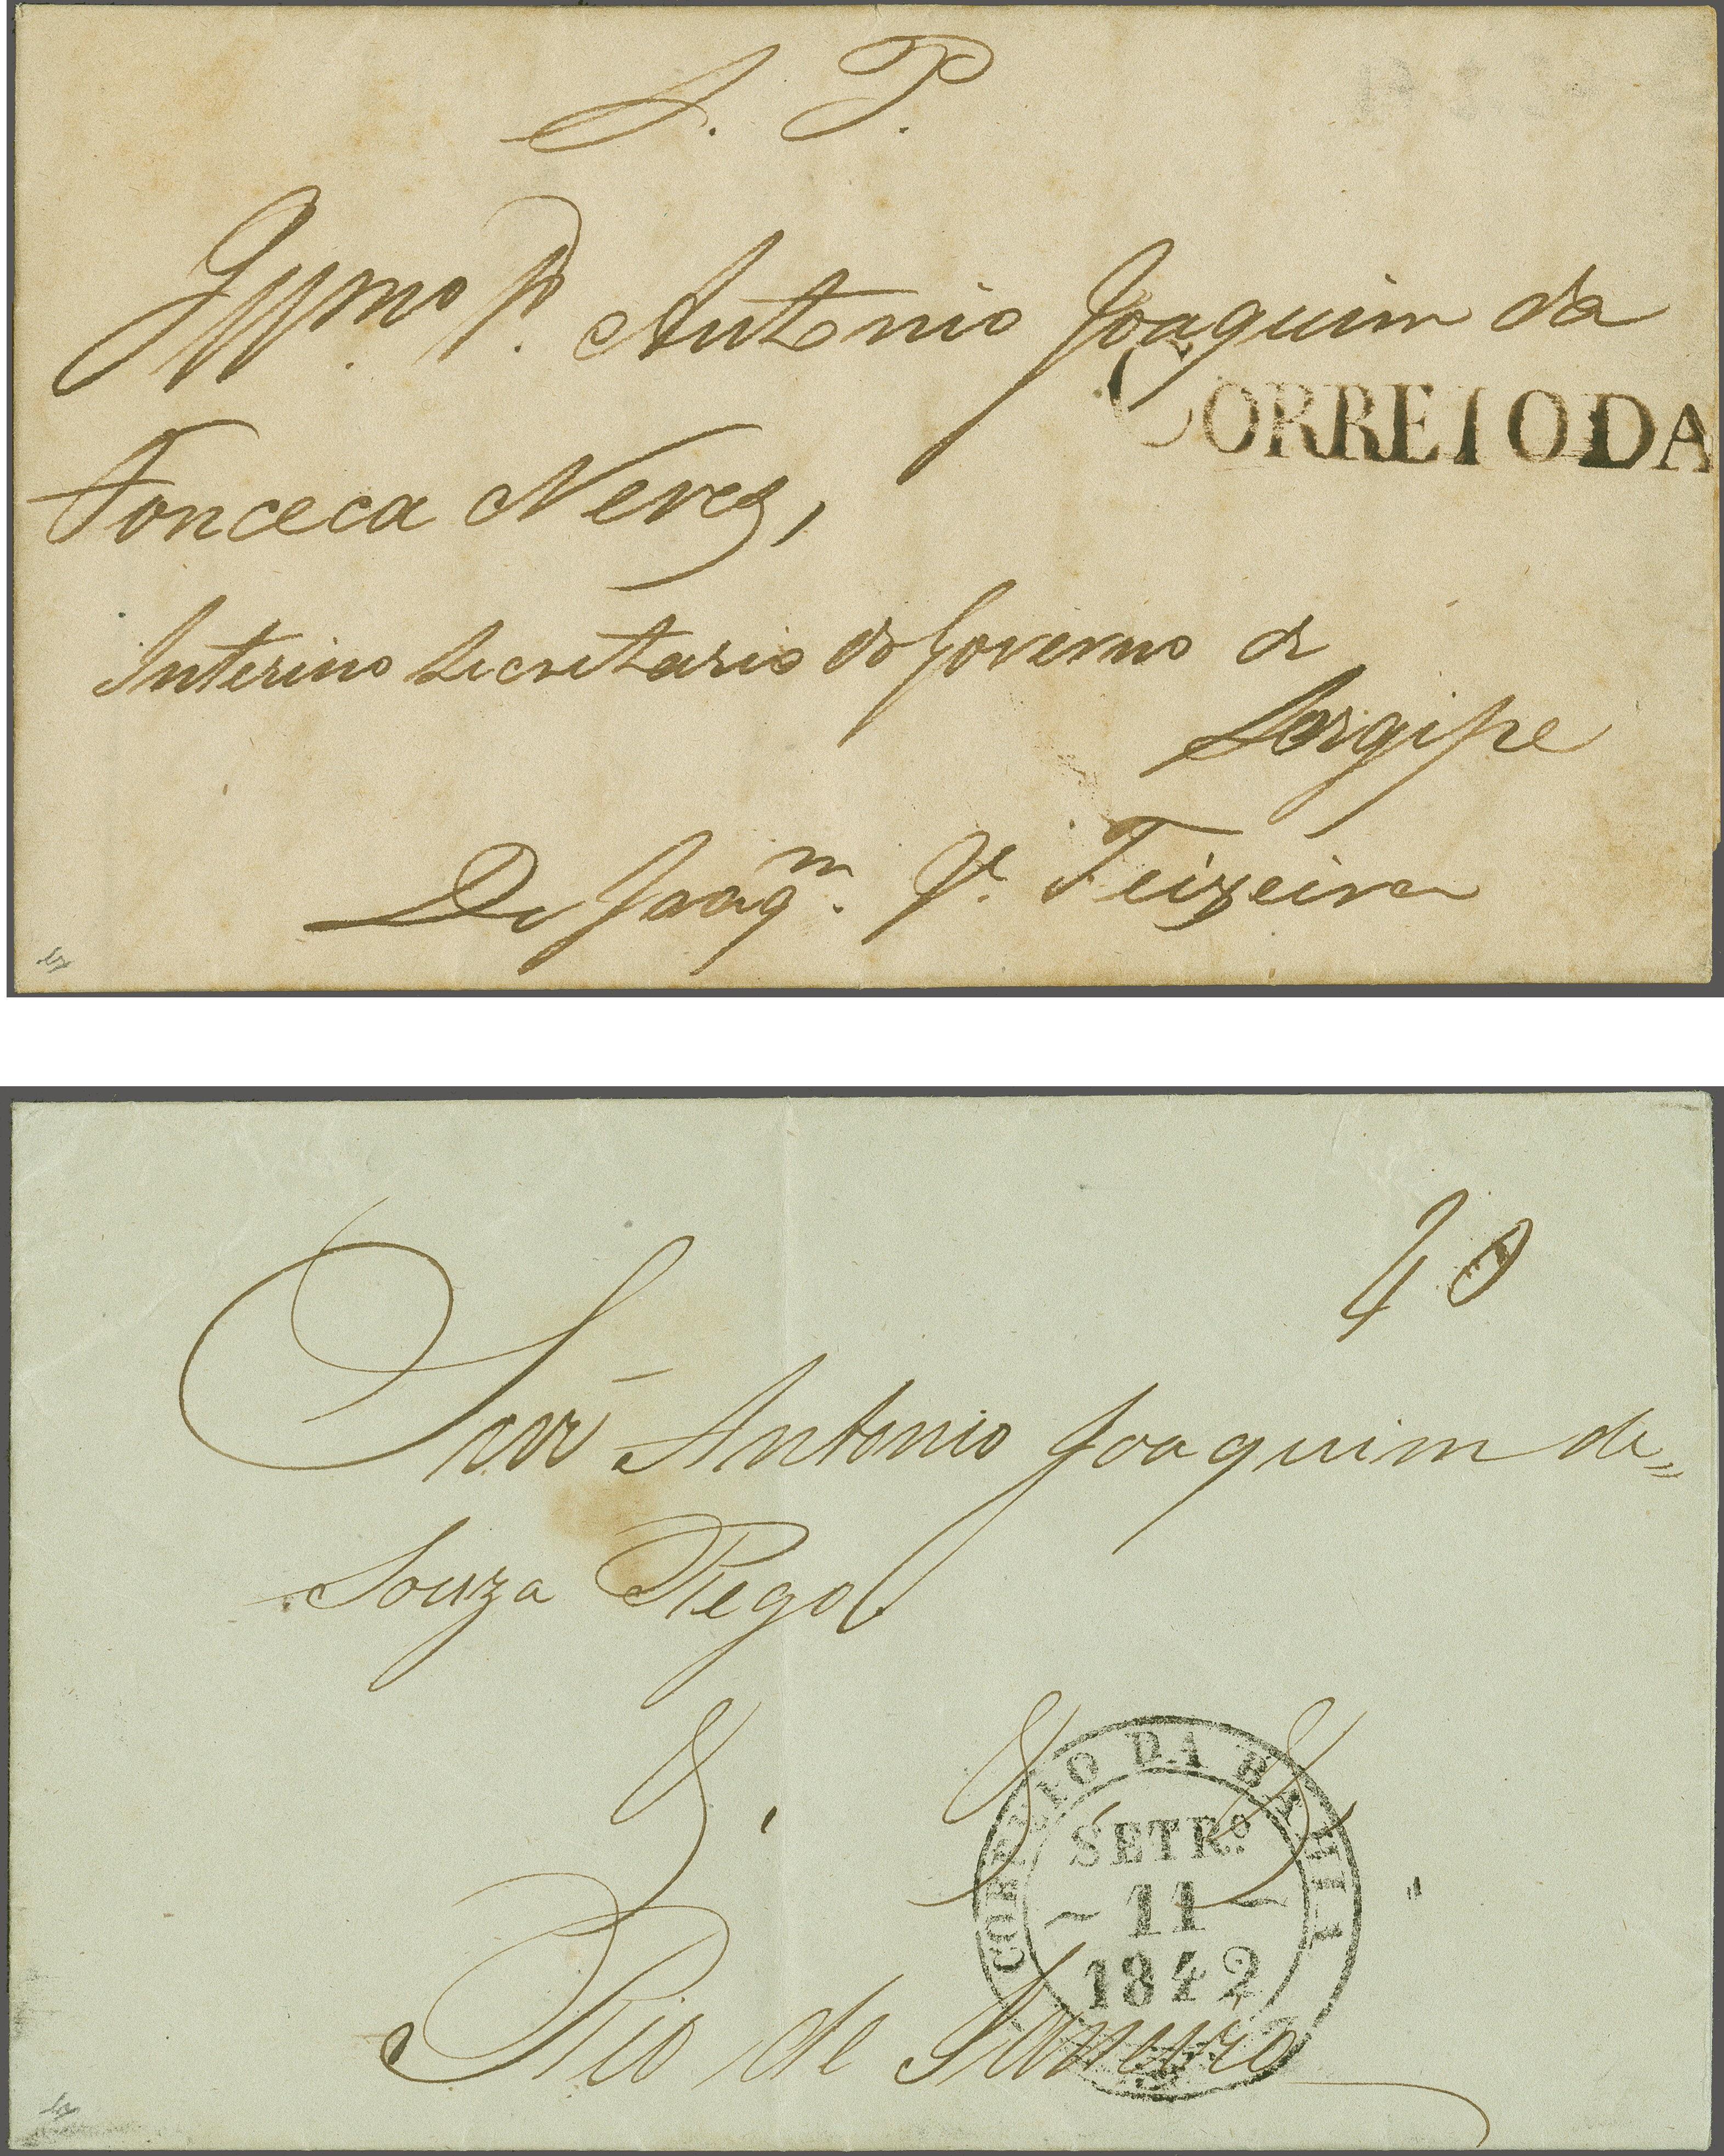 S. P.
Antonio Joaquim da
CORREIO DA
Fonceca Neves,
Interino Secretario do Governo de
Sergipe
De Joaqm. Teixeira
40
Antonio Joaquim de
Souza Rego
CORREIO DA BAHIA
SETRº.
~ 11 ~
1842
Rio de Janeiro